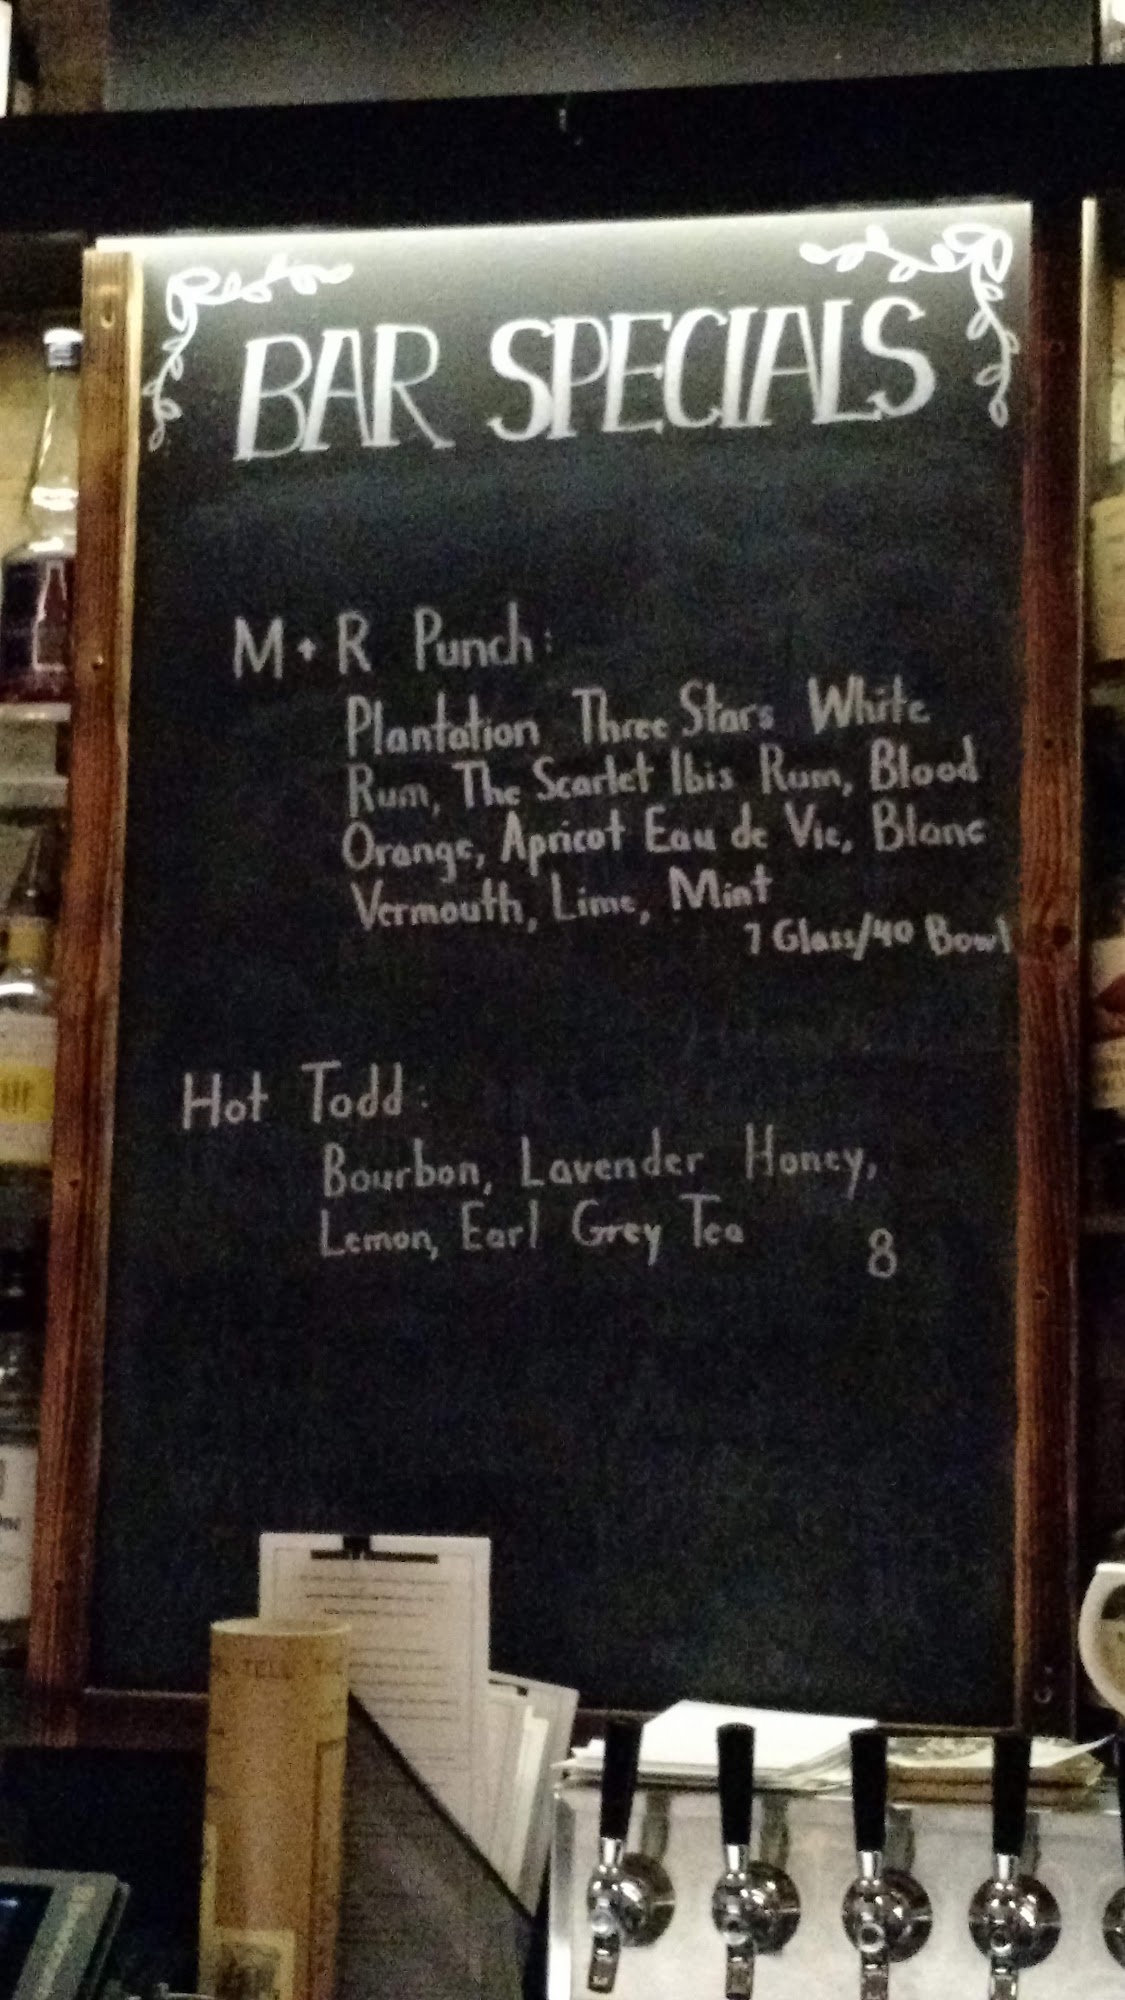 BAR SPECIALS
M + R Punch:
Plantation Three Stars White
Rum, The Scarlet Ibis Rum, Blood
Orange, Apricot Eau de Vie, Blanc
Vermouth, Lime, Mint
7 Glass/40 Bowl
Hot Todd:
Bourbon, Lavender Honey,
Lemon, Earl Grey Tea
8
TELL